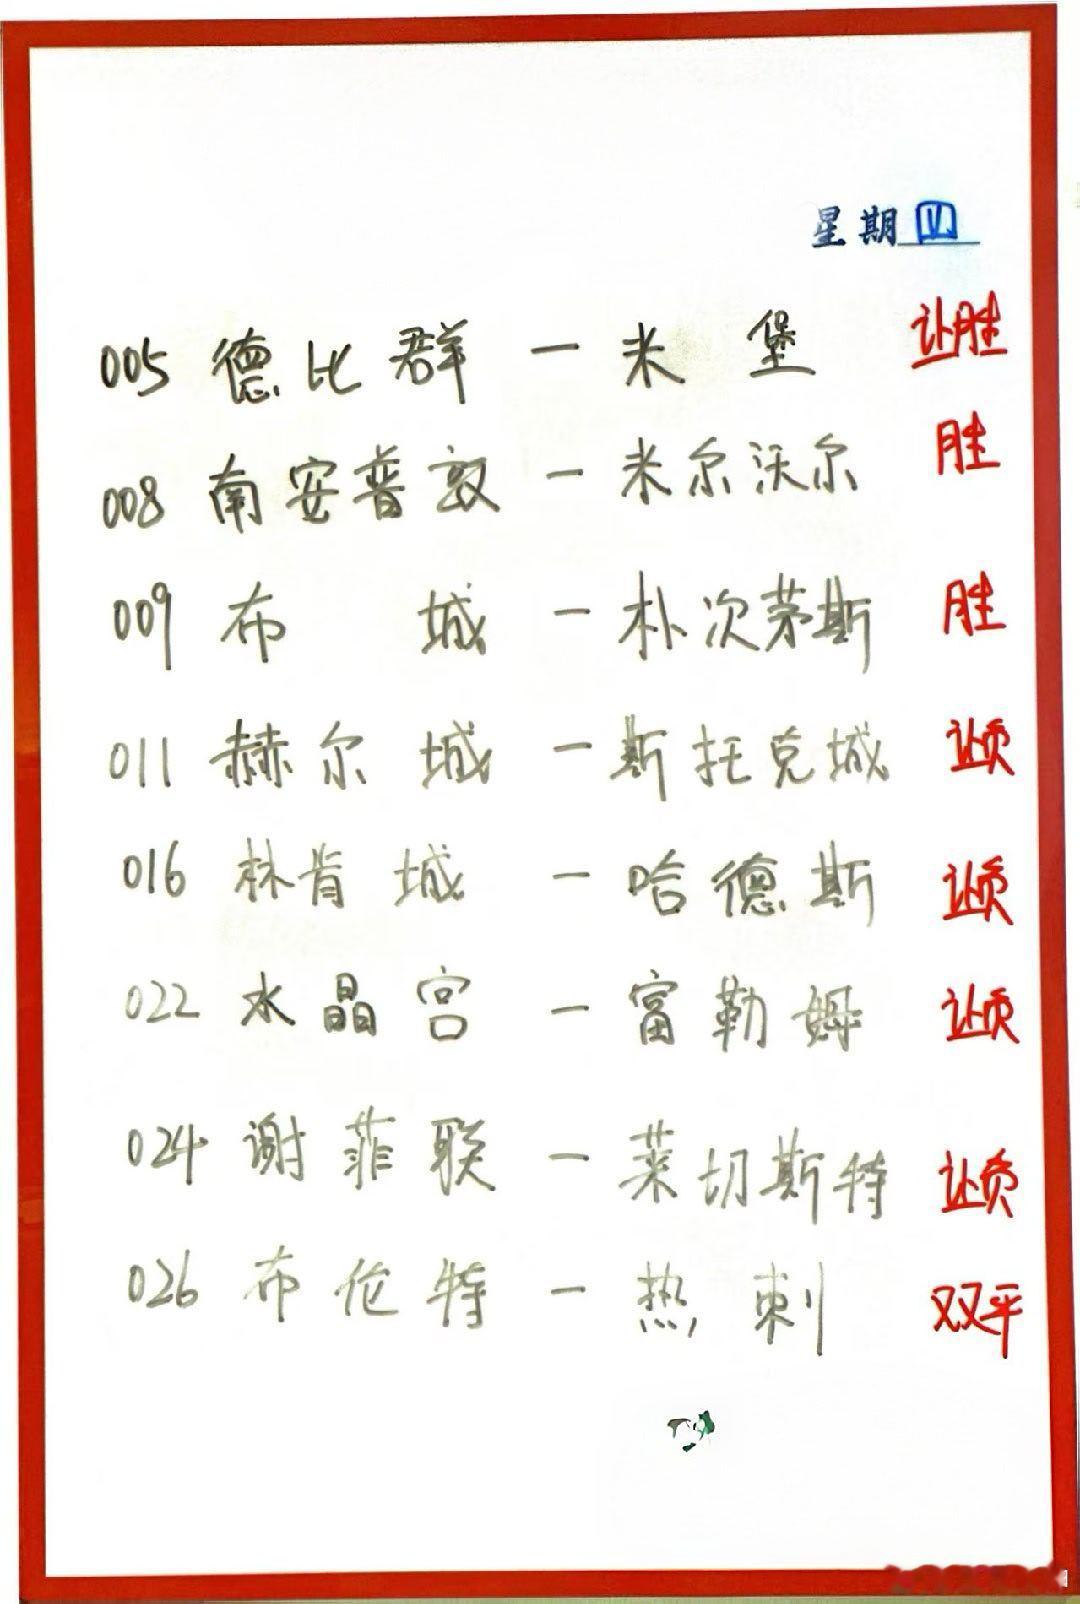 星期四
005 德比群 — 米堡 让胜
008 南安普敦 — 米尔沃尔 胜
009 布城 — 朴次茅斯 胜
011 赫尔城 — 斯托克城 让负
016 林肯城 — 哈德斯 让负
022 水晶宫 — 富勒姆 让负
024 谢菲联 — 莱切斯特 让负
026 布伦特 — 热刺 双平